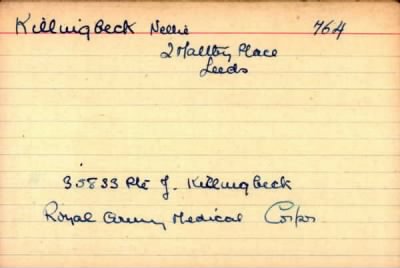 Killingbeck Nellie 764
2 Maltby Place
Leeds
35833 Pte J. Killingbeck
Royal Army Medical Corps